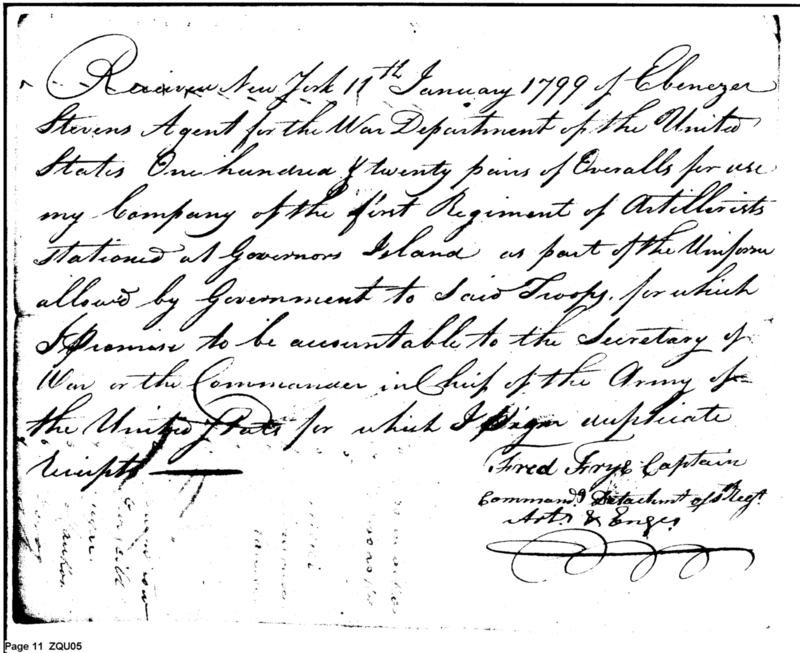 Received New York 11th January 1799 of Ebenezer
Stevens Agent for the War Department of the United
States One hundred & twenty pairs of Overalls for use
my Company of the first Regiment of Artillerists
stationed at Governors Island as part of the Uniform
allowed by Government to Said Troops, for which
I Promise to be accountable to the Secretary of
War or the Commander in Chief of the Army of
the United States for which I Sign duplicate
receipts
Fred Frye Captain
Command.g Detachmt of Regt.
Arts & Engrs
Page 11 ZQU05